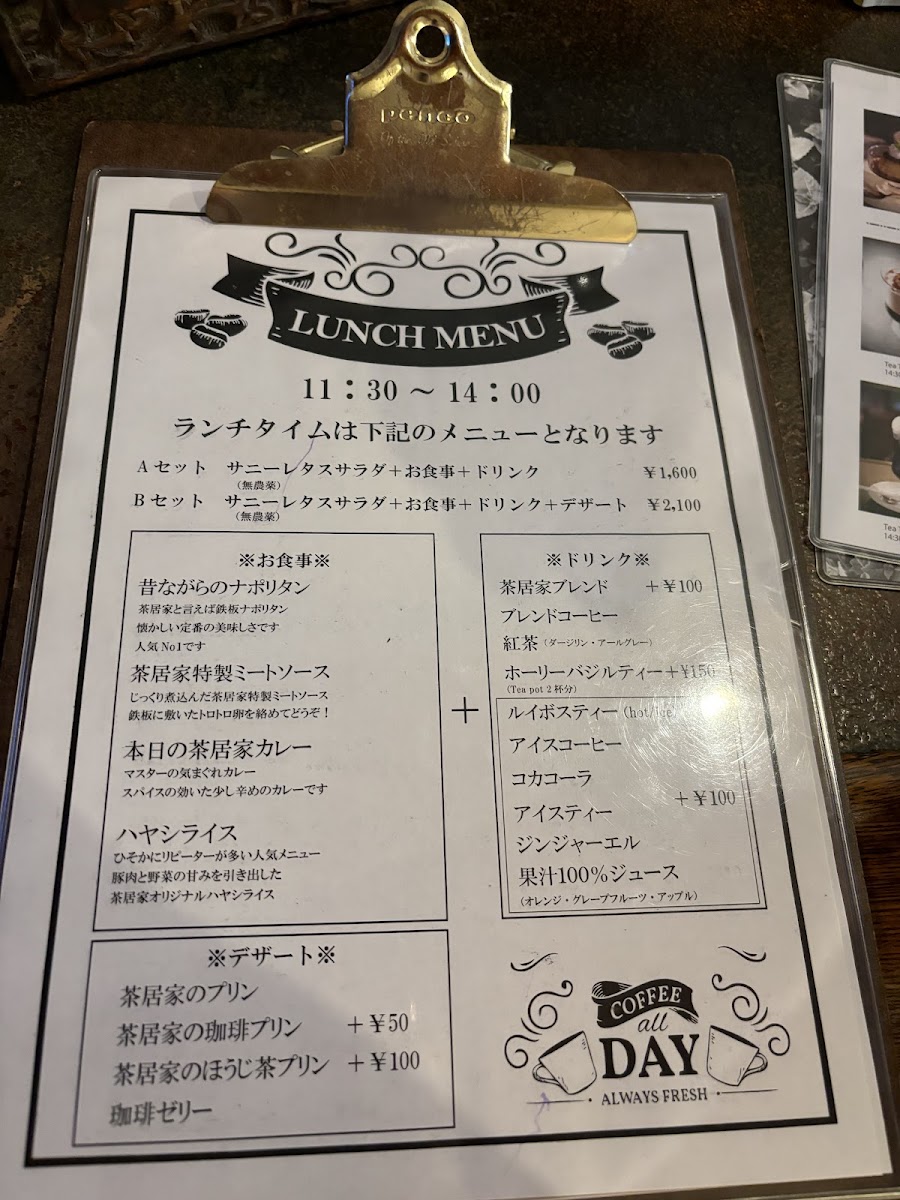 penco
LUNCH MENU
11：30 ～ 14：00
ランチタイムは下記のメニューとなります
Aセット サニーレタスサラダ＋お食事＋ドリンク ￥1,600
（無農薬）
Bセット サニーレタスサラダ＋お食事＋ドリンク＋デザート ￥2,100
（無農薬）
※お食事※
昔ながらのナポリタン
茶居家と言えば鉄板ナポリタン
懐かしい定番の美味しさです
人気 No1です
茶居家特製ミートソース
じっくり煮込んだ茶居家特製ミートソース
鉄板に敷いたトロトロ卵を絡めてどうぞ！
本日の茶居家カレー
マスターの気まぐれカレー
スパイスの効いた少し辛めのカレーです
ハヤシライス
ひそかにリピーターが多い人気メニュー
豚肉と野菜の甘みを引き出した
茶居家オリジナルハヤシライス
＋
※ドリンク※
茶居家ブレンド ＋￥100
ブレンドコーヒー
紅茶（ダージリン・アールグレー）
ホーリーバジルティー＋￥150
（Tea pot 2杯分）
ルイボスティー（hot/ice）
アイスコーヒー
コカコーラ
＋￥100
アイスティー
ジンジャーエル
果汁100%ジュース
（オレンジ・グレープフルーツ・アップル）
※デザート※
茶居家のプリン
茶居家の珈琲プリン ＋￥50
茶居家のほうじ茶プリン ＋￥100
珈琲ゼリー
COFFEE
all
DAY
・ALWAYS FRESH・
Tea
14:30
Tea
14:30